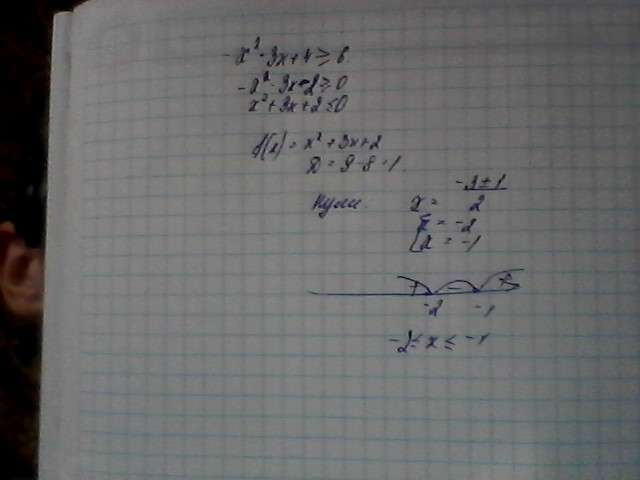 -x²-3x+4≥6
-x²-3x-2≥0
x²+3x+2≤0
f(x)=x²+3x+2
D=9-8=1.
Нули. x= -3±1 / 2
[x=-2
x=-1
+ - +
-2 -1
-2≤x≤-1